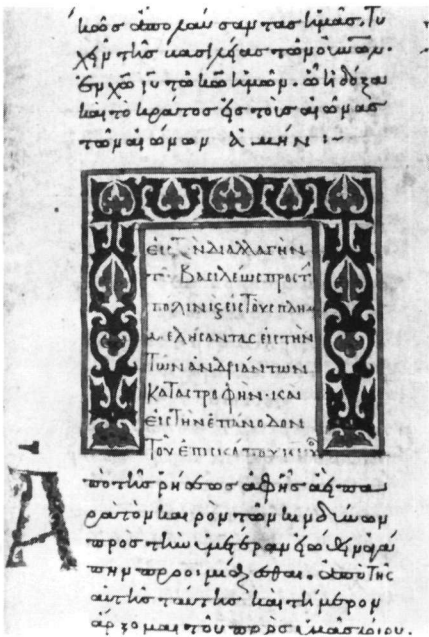 ἀπολαύσαντας ἡμᾶς, τυ
χεῖν τῆς βασιλείας τῶν οὐνῶν.
ἐν χῶ ιῦ τῶ κῶ ἡμῶν. ὧ ἡ δόξα
καὶ τὸ κράτος εἰς τοὺς αἰῶνας
τῶν αἰώνων ἀμήν :~
ΕΙΣ ΤῊΝ ΔΙΑΛΛΑΓῊΝ
ΒΑΣΙΛΕΩΣ ΠΡΟΣ Τ
ΠΟΛΙΝ ΚΑΙ ΕΙΣ ΤΟΥΣ ΠΛΗΜ
ΜΕΛΗΣΑΝΤΑΣ ΕΙΣ ΤῊΝ
ΤΩΝ ἈΝΔΡΙΑΝΤΩΝ
ΚΑΤΑΣΤΡΟΦῊΝ· ΚΑΙ
ΕΙΣ ΤῊΝ ἘΠΑΝΟΔΟΝ
ΤΟΥ ἘΠΙΣΚΟΠΟΥ
Ἀπὸ τῆς ῥήσεως ἀφῆς ἀεὶ πα
ρὰ τὸν καιρὸν τῶν κινδύνων
πρὸς τὴν ὑμετέραν εἰώθειν ἀγά
πην προοιμιάζεσθαι. ἀπὸ τῆς
αὐτῆς ταύτης καὶ τήμερον
ἄρχομαι τοῦ πρὸς ὑμᾶς λόγου.